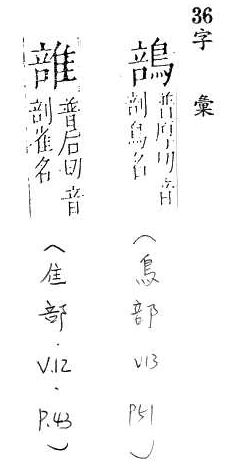 36 字彙
䳝 普厚切音
剖鳥名
(鳥部 V.13 P.51)
䧽 普后切音
剖雀名
(隹部. V.12. P.43)